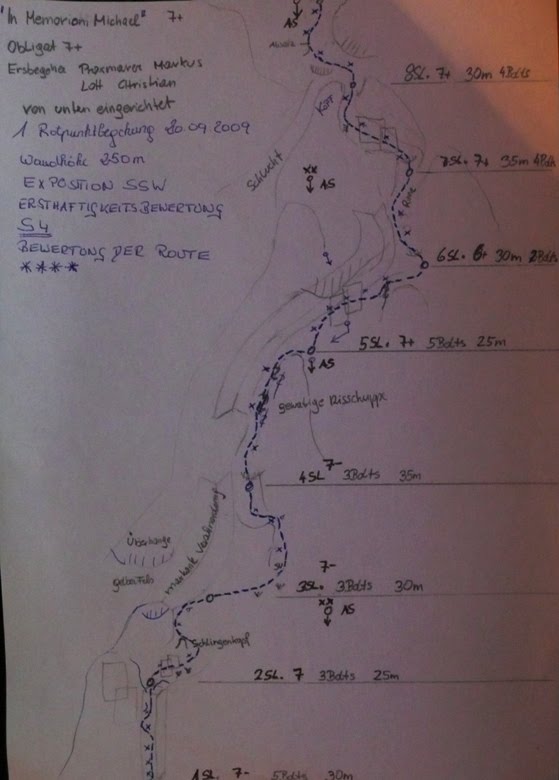 "In Memoriam Michael" 7+
Obligat 7+
Erstbegeher Markus
Lott Christian
von unten eingerichtet
1 Rotpunktbegehung 20.09.2009
Wandhöhe 250m
EXPOSITION SSW
ERSTHAFTIGKEITSBEWERTUNG
S4
BEWERTUNG DER ROUTE
****
AS
8SL. 7+ 30m 4Bolts
Kopf
7SL. 7+ 35m 4Bolts
Schlucht
AS
Rinne
6SL. 6+ 30m 2Bolts
5SL. 7+ 5Bolts 25m
AS
gewaltige Risschuppe
4SL 7- 3Bolts 35m
markante Verschneidung
Überhänge
gelber Fels
3SL. 7- 3Bolts 30m
AS
Schlingenkopf
2SL. 7 3Bolts 25m
1SL. 7- 5Bolts 30m